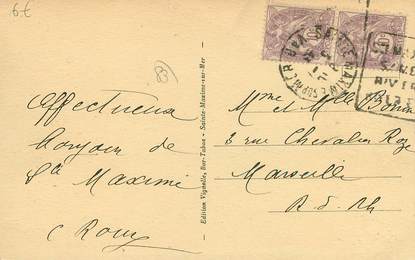 6€
83
10
10
Affectueux
Bonjour de
Ste Maxime
Edition Vignelle, Bar-Tabac - Sainte-Maxime-sur-Mer
Mme et Mlle
3 rue Chevalier Roze
Marseille
B. d. Rh